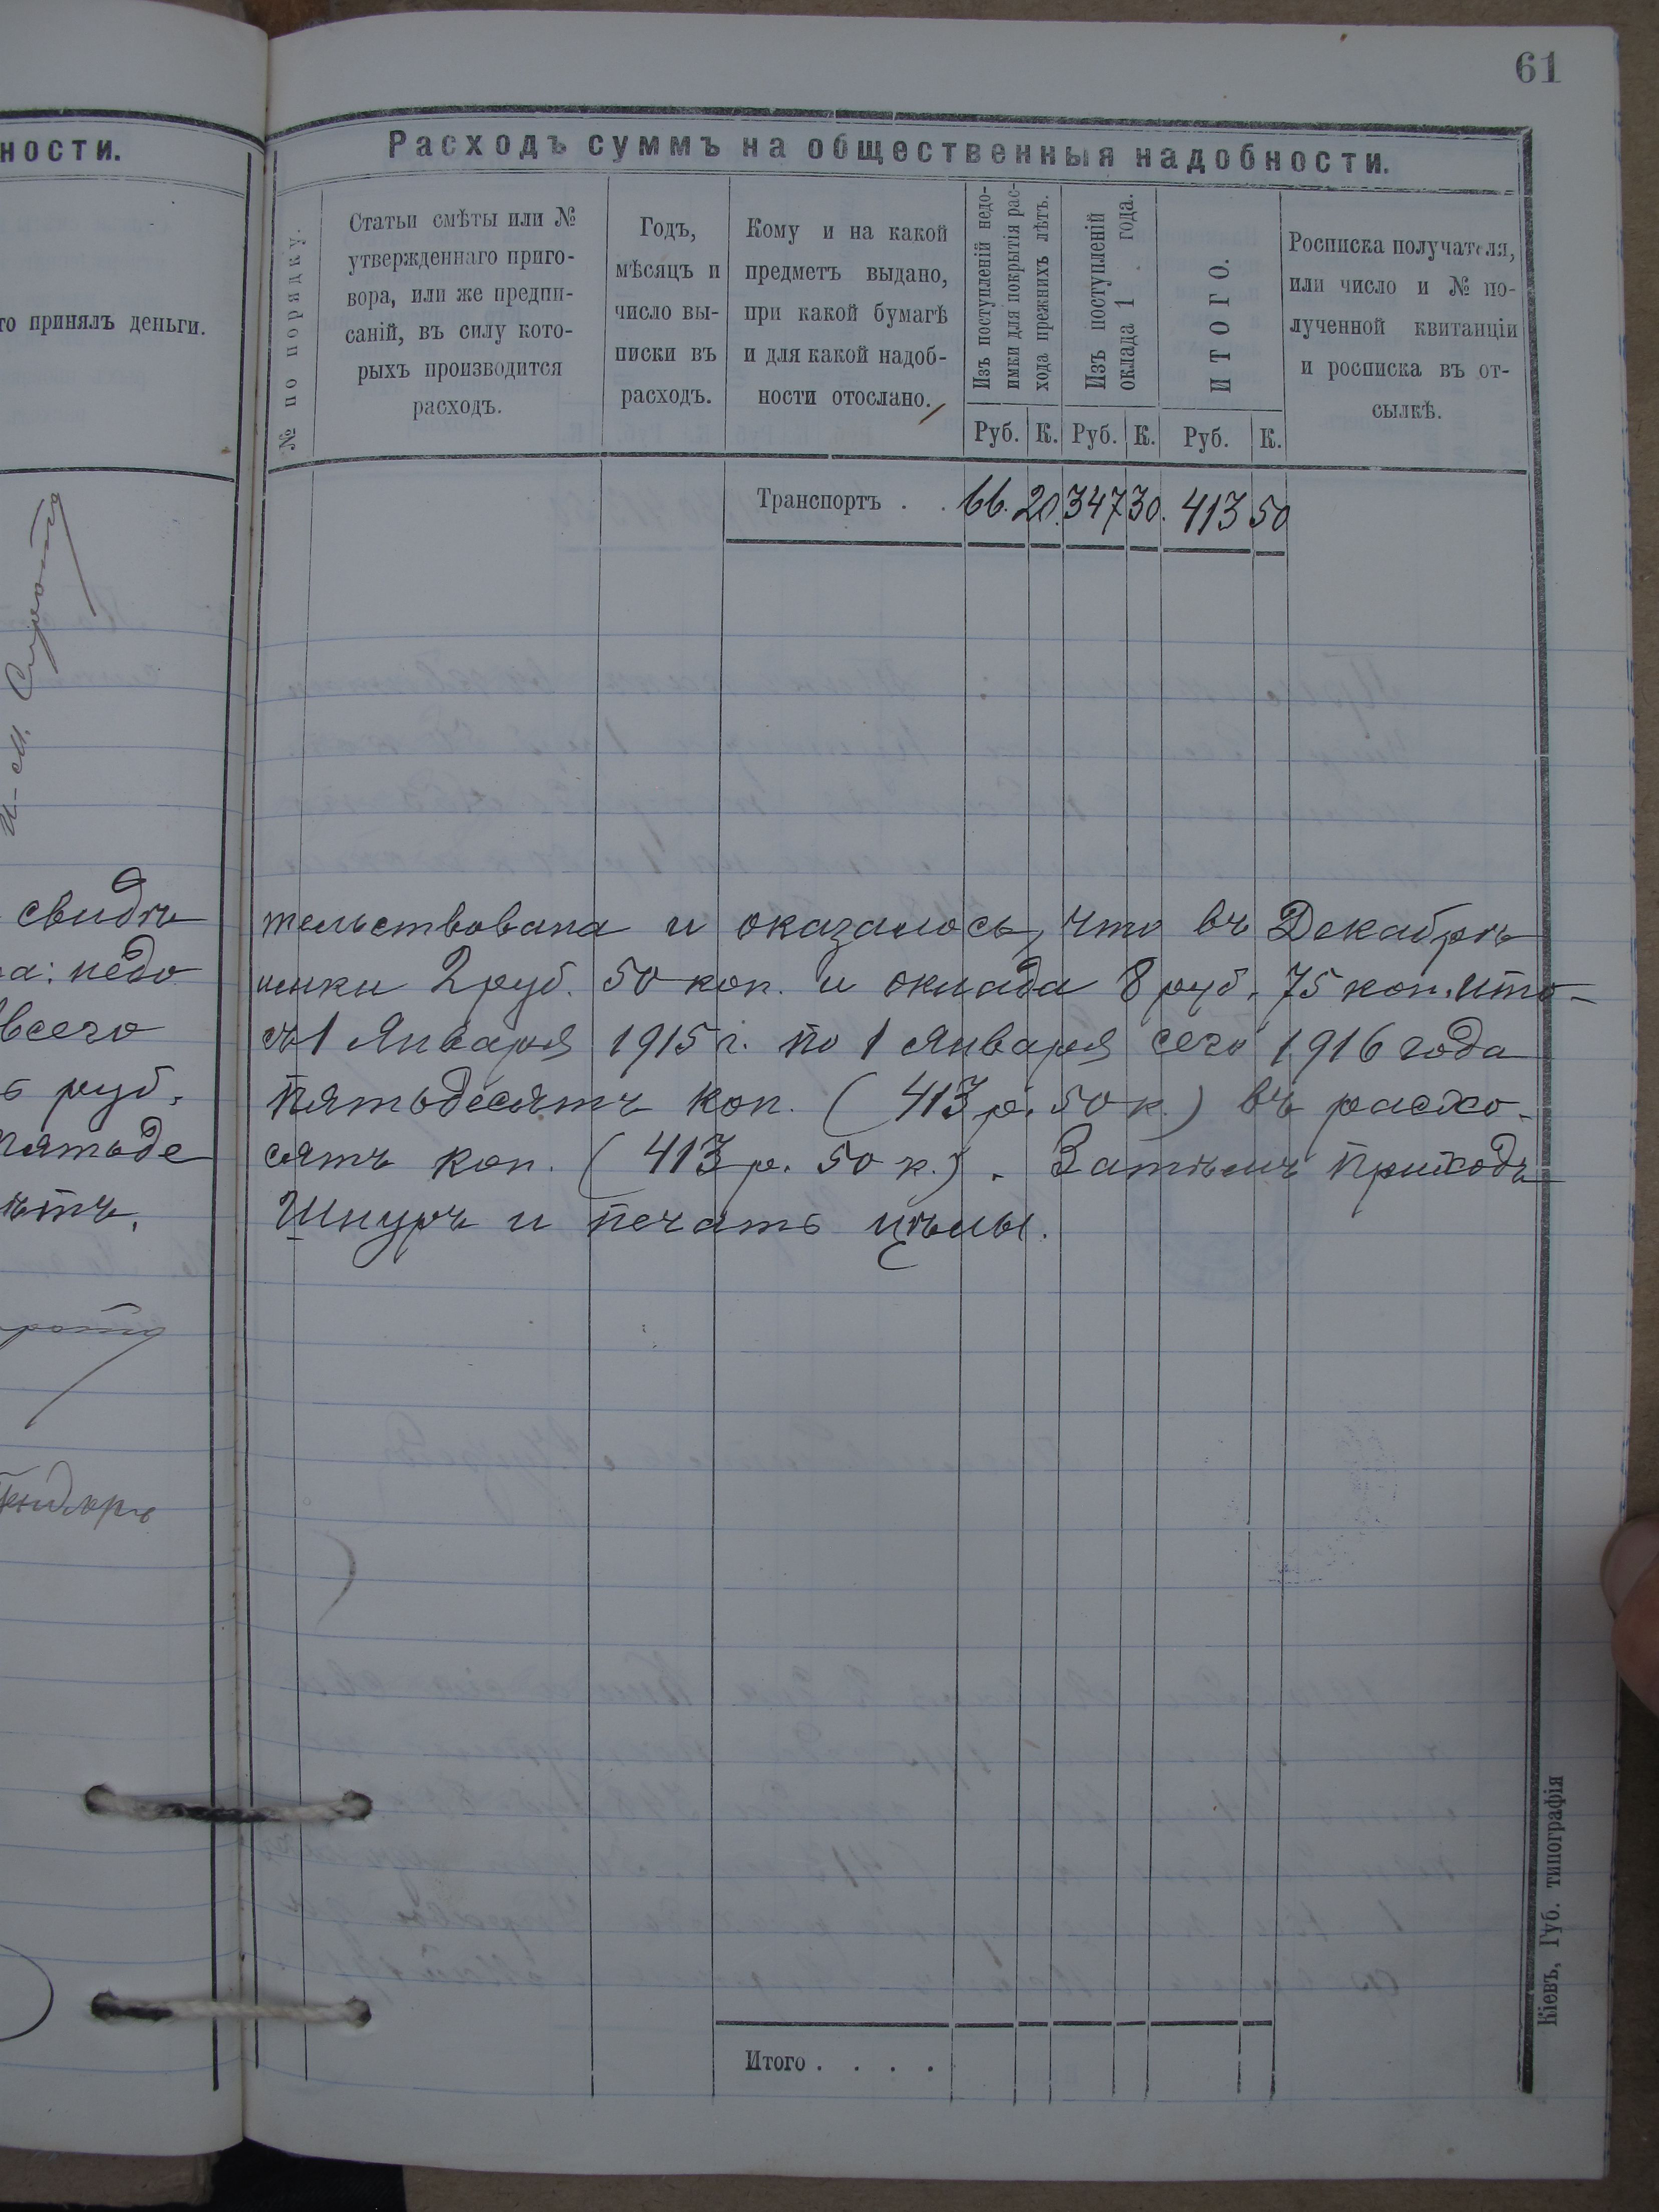 61
ности.
то принялъ деньги.
И-М. Сирота
свидѣ
а: недо
всего
ь руб.
пятьде
ѣтъ.
Расходъ суммъ на общественныя надобности.
№ по порядку.
Статьи смѣты или №
утвержденнаго приго-
вора, или же предпи-
саній, въ силу кото-
рыхъ производится
расходъ.
Годъ,
мѣсяцъ и
число вы-
писки въ
расходъ.
Кому и на какой
предметъ выдано,
при какой бумагѣ
и для какой надоб-
ности отослано.
Изъ поступленій недо-
имки для покрытія рас-
хода прежнихъ лѣтъ.
Изъ поступленій
оклада 1 года.
ИТОГО.
Росписка получателя,
или число и № по-
лученной квитанціи
и росписка въ от-
сылкѣ.
Руб. К. Руб. К. Руб. К.
Транспортъ . . 66. 20. 347 30. 413 50
тельствована и оказалось, что въ Декабрѣ
имки 2 руб. 50 коп. и оклада 8 руб. 75 коп. ито-
съ 1 Января 1915 г. по 1 Января сего 1916 года
пятьдесятъ коп. (413 р. 50 к.) въ расхо-
сятъ коп. (413 р. 50 к.). Затѣмъ приходъ
Шнуръ и печать цѣлы.
Итого . . . .
Кіевъ, Губ. типографія